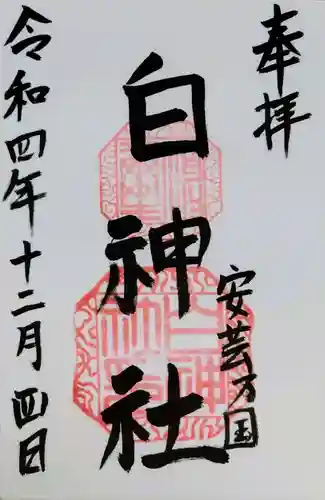 奉拝
安芸万国
白神社
令和四年十二月四日